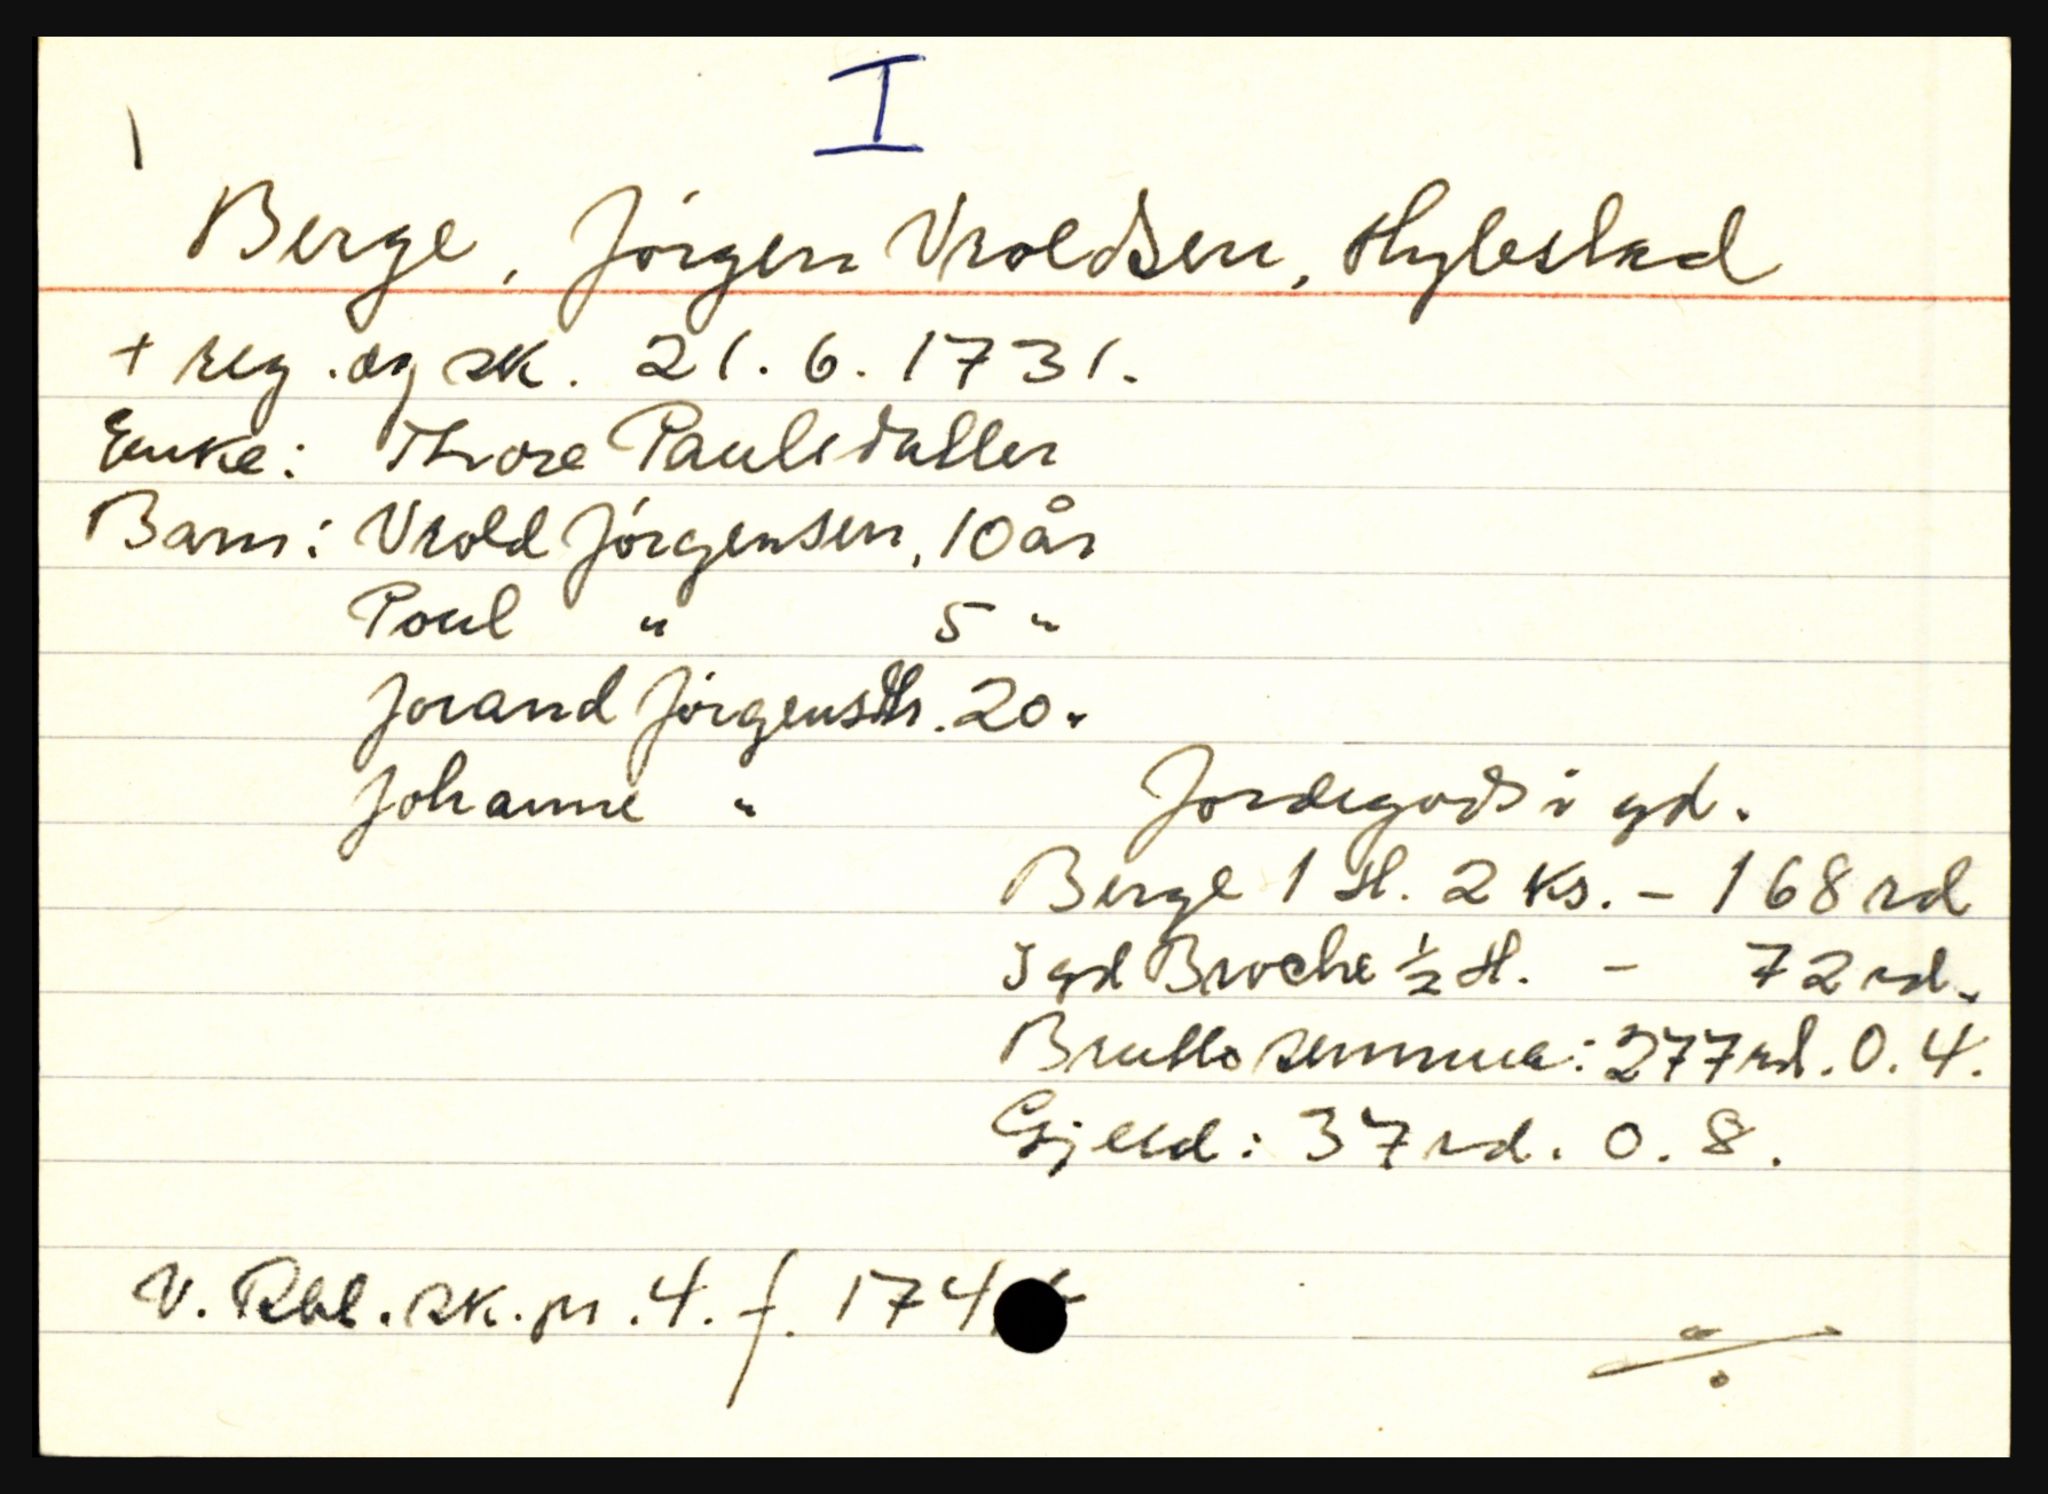 I
Berge, Jörgen Vroldsen, Hylestad
+ reg. og sk. 21. 6. 1731.
Enke: Thore Paulsdatter
Barn: Vrold Jörgensen, 10 år
Poul " 5 "
Jorand Jörgensdtr. 20 "
Johanne "
Jordegods i gd.
Berge 1 H. 2 ks. - 168 rd
I gd Broche ½ H. - 72 rd.
Brutto summa: 277 rd. 0. 4.
Gjeld: 37 rd. 0. 8.
V. Rbl. sk. pr. 4. f. 174